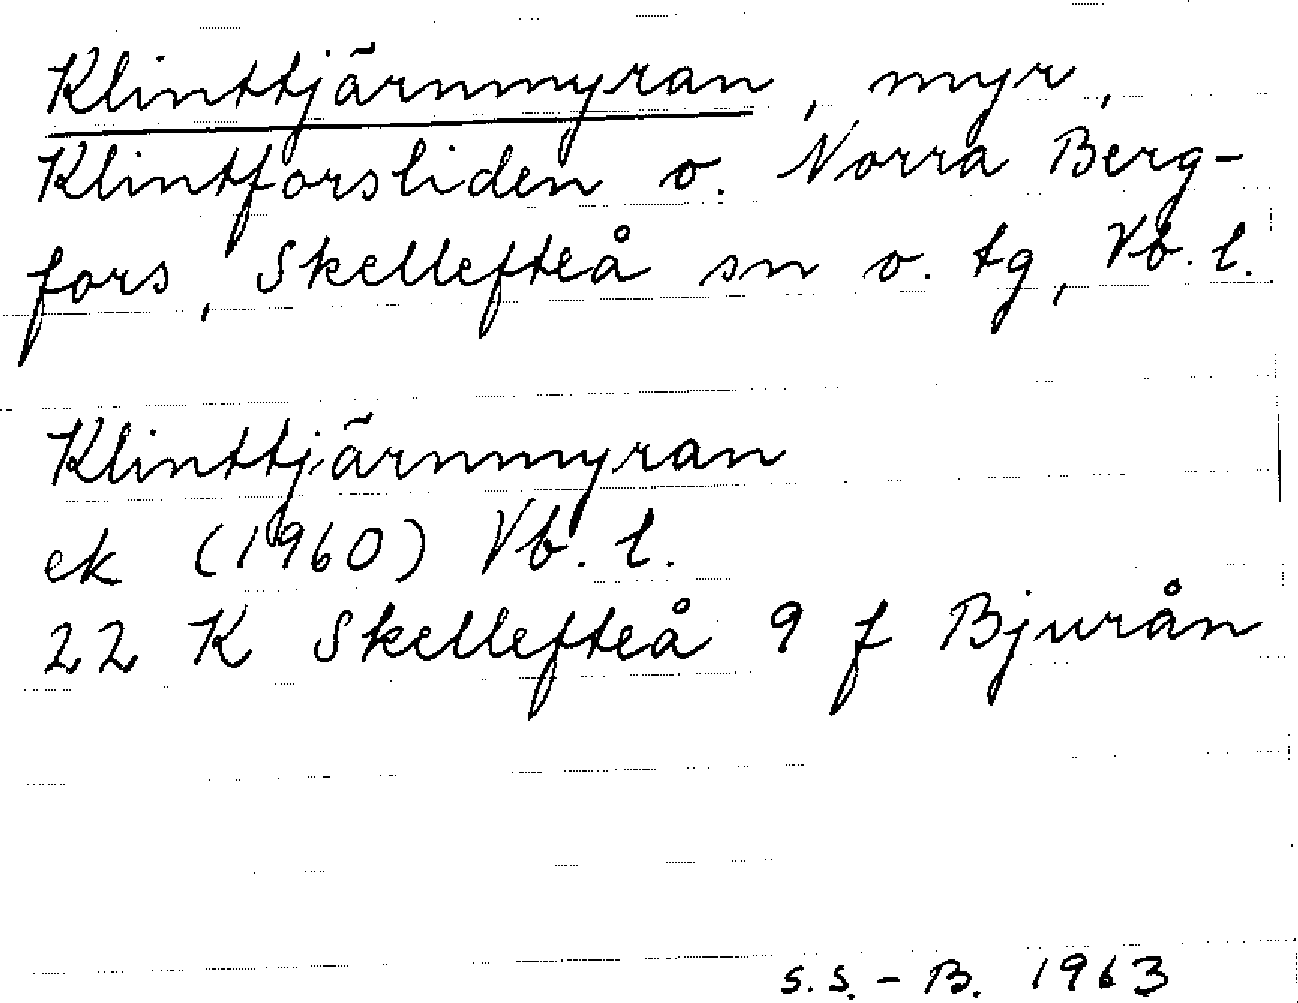 Klinttjärnmyran, myr,
Klintforsliden o. Norra Berg-
fors, Skellefteå sn o. tg, Vb. l.
Klinttjärnmyran
ek (1960) Vb. l.
22 K Skellefteå 9 f Bjurån
S.S. - B. 1963